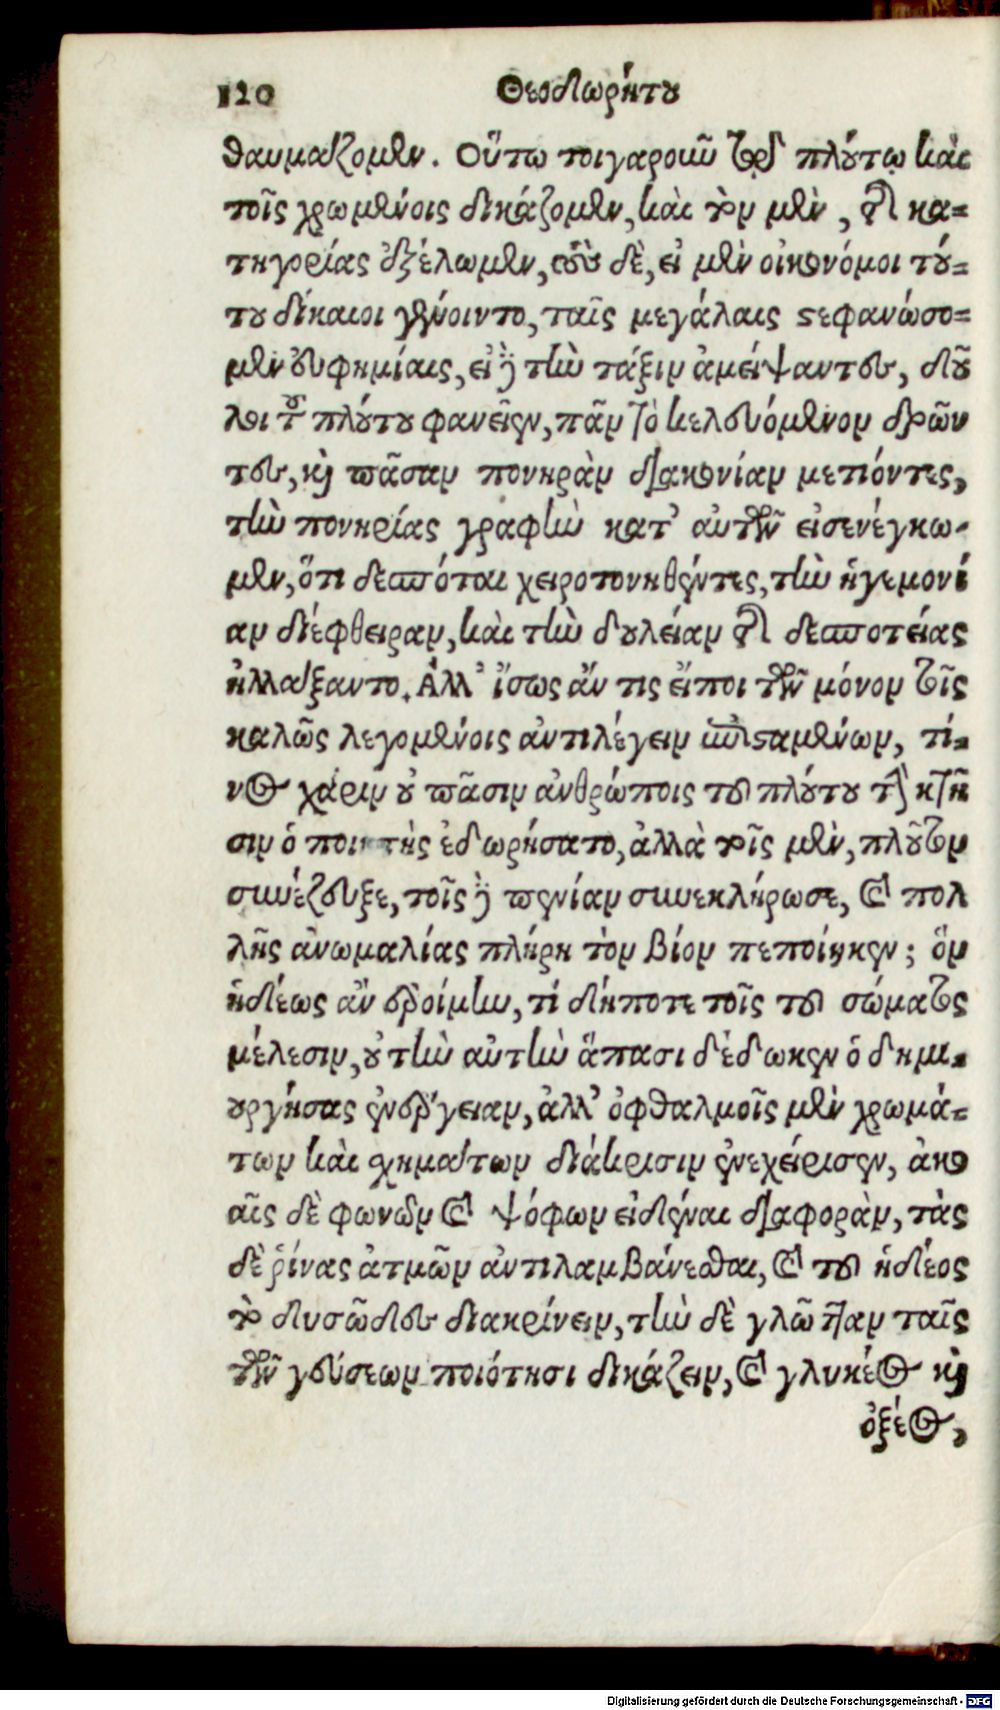 120 Θεοδωρήτου
θαυμάζομεν. Οὕτω τοιγαροῦν τῷ πλούτῳ καὶ
τοῖς χρωμένοις δικάζομεν, καὶ τὸν μὲν, τῆς κα-
τηγορίας ἐξέλωμεν, τοὺς δὲ, εἰ μὲν οἰκονόμοι τού-
του δίκαιοι γένοιντο, ταῖς μεγάλαις στεφανώσο-
μεν εὐφημίαις, εἰ δὲ τὴν τάξιν ἀμείψαντες, δοῦ
λοι τοῦ πλούτου φανεῖεν, πᾶν τὸ κελευόμενον δρῶν
τες, καὶ πᾶσαν πονηρὰν διακονίαν μετιόντες,
τὴν πονηρίας γραφὴν κατ' αὐτῶν εἰσενέγκω-
μεν, ὅτι δεσπόται χειροτονηθέντες, τὴν ἡγεμονί
αν διέφθειραν, καὶ τὴν δουλείαν τῆς δεσποτείας
ἠλλάξαντο. Ἀλλ' ἴσως ἄν τις εἴποι τῶν μόνον τοῖς
καλῶς λεγομένοις ἀντιλέγειν ἐπισταμένων, τί-
νος χάριν οὐ πᾶσιν ἀνθρώποις τοῦ πλούτου τὴν κτῆ
σιν ὁ ποιητὴς ἐδωρήσατο, ἀλλὰ τοῖς μὲν, πλοῦτον
συνέζευξε, τοῖς δὲ πενίαν συνεκλήρωσε, καὶ πολ
λῆς ἀνωμαλίας πλήρη τὸν βίον πεποίηκεν; ὃν
ἡδέως ἂν ἐροίμην, τί δήποτε τοῖς τοῦ σώματος
μέλεσιν, οὐ τὴν αὐτὴν ἅπασι δέδωκεν ὁ δημι-
ουργήσας ἐνέργειαν, ἀλλ' ὀφθαλμοῖς μὲν χρωμά-
των καὶ σχημάτων διάκρισιν ἐνεχείρισεν, ἀκο
αῖς δὲ φωνῶν καὶ ψόφων εἰδέναι διαφορὰν, τὰς
δὲ ῥίνας ἀτμῶν ἀντιλαμβάνεσθαι, καὶ τοῦ ἡδέος
τὸ δυσῶδες διακρίνειν, τὴν δὲ γλῶτταν ταῖς
τῶν γεύσεων ποιότησι δικάζειν, καὶ γλυκέος καὶ
ὀξέος,
Digitalisierung gefördert durch die Deutsche Forschungsgemeinschaft - DFG